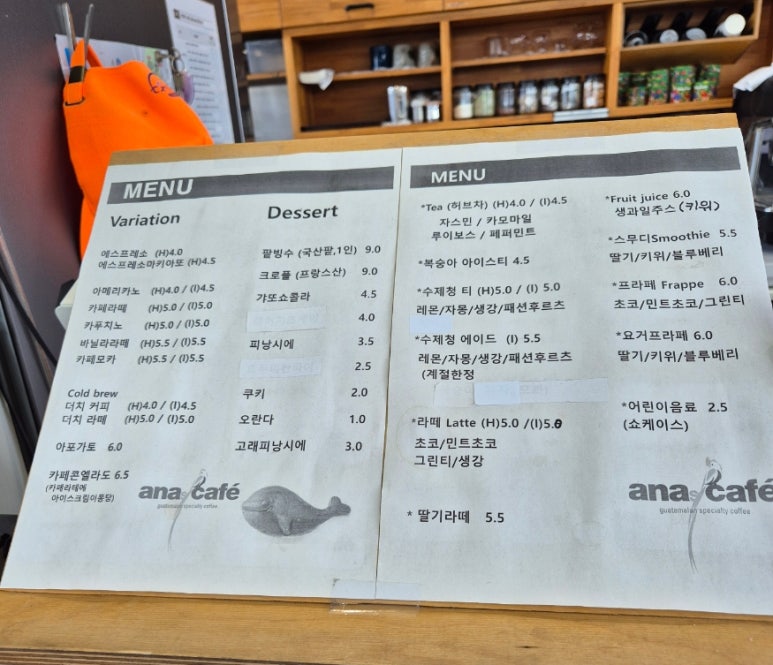 MENU
Variation
에스프레소 (H)4.0
에스프레소마키아또 (H)4.5
아메리카노 (H)4.0 / (I)4.5
카페라떼 (H)5.0 / (I)5.0
카푸치노 (H)5.0 / (I)5.0
바닐라라떼 (H)5.5 / (I)5.5
카페모카 (H)5.5 / (I)5.5
Cold brew
더치 커피 (H)4.0 / (I)4.5
더치 라떼 (H)5.0 / (I)5.0
아포가토 6.0
카페콘엘라도 6.5
(카페라떼에
아이스크림아퐁당)
Dessert
팥빙수 (국산팥,1인) 9.0
크로플 (프랑스산) 9.0
갸또쇼콜라 4.5
4.0
피낭시에 3.5
2.5
쿠키 2.0
오란다 1.0
고래피낭시에 3.0
anas café
MENU
*Tea (허브차) (H)4.0 / (I)4.5
자스민 / 카모마일
루이보스 / 페퍼민트
*복숭아 아이스티 4.5
*수제청 티 (H)5.0 / (I) 5.0
레몬/자몽/생강/패션후르츠
*수제청 에이드 (I) 5.5
레몬/자몽/생강/패션후르츠
(계절한정
*라떼 Latte (H)5.0 /(I)5.0
초코/민트초코
그린티/생강
* 딸기라떼 5.5
*Fruit juice 6.0
생과일주스(키위)
*스무디Smoothie 5.5
딸기/키위/블루베리
*프라페 Frappe 6.0
초코/민트초코/그린티
*요거프라페 6.0
딸기/키위/블루베리
*어린이음료 2.5
(쇼케이스)
anas café
guatemalan specialty coffee